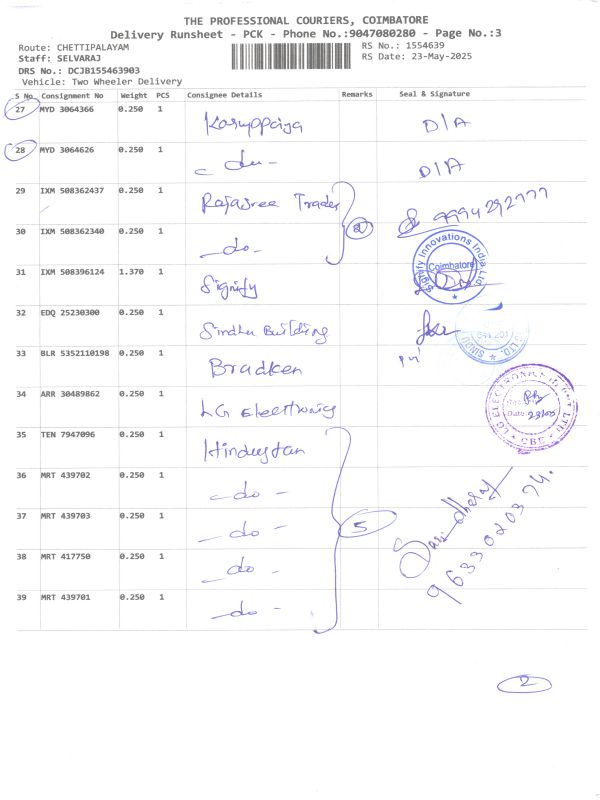 THE PROFESSIONAL COURIERS, COIMBATORE
Delivery Runsheet - PCK - Phone No.:9047080280 - Page No.:3
Route: CHETTIPALAYAM RS No.: 1554639
Staff: SELVARAJ RS Date: 23-May-2025
DRS No.: DCJB155463903
Vehicle: Two Wheeler Delivery
S No Consignment No Weight PCS Consignee Details Remarks Seal & Signature
27 MYD 3064366 0.250 1 Karuppaiya D/A
28 MYD 3064626 0.250 1 - do - D/A
29 IXM 508362437 0.250 1 Rajasree Trader 9994292777
30 IXM 508362340 0.250 1 - do - 2
31 IXM 508396124 1.370 1 Signify Signify Innovations India Ltd Coimbatore
32 EDQ 25230300 0.250 1 Sindhu Building
33 BLR 5352110198 0.250 1 Bradken
34 ARR 30489862 0.250 1 LG Electronics LG ELECTRONICS Date CBE
35 TEN 7947096 0.250 1 Hindustan
36 MRT 439702 0.250 1 - do -
37 MRT 439703 0.250 1 - do - 5 Sasidharan 9633020394.
38 MRT 417750 0.250 1 - do -
39 MRT 439701 0.250 1 - do -
2